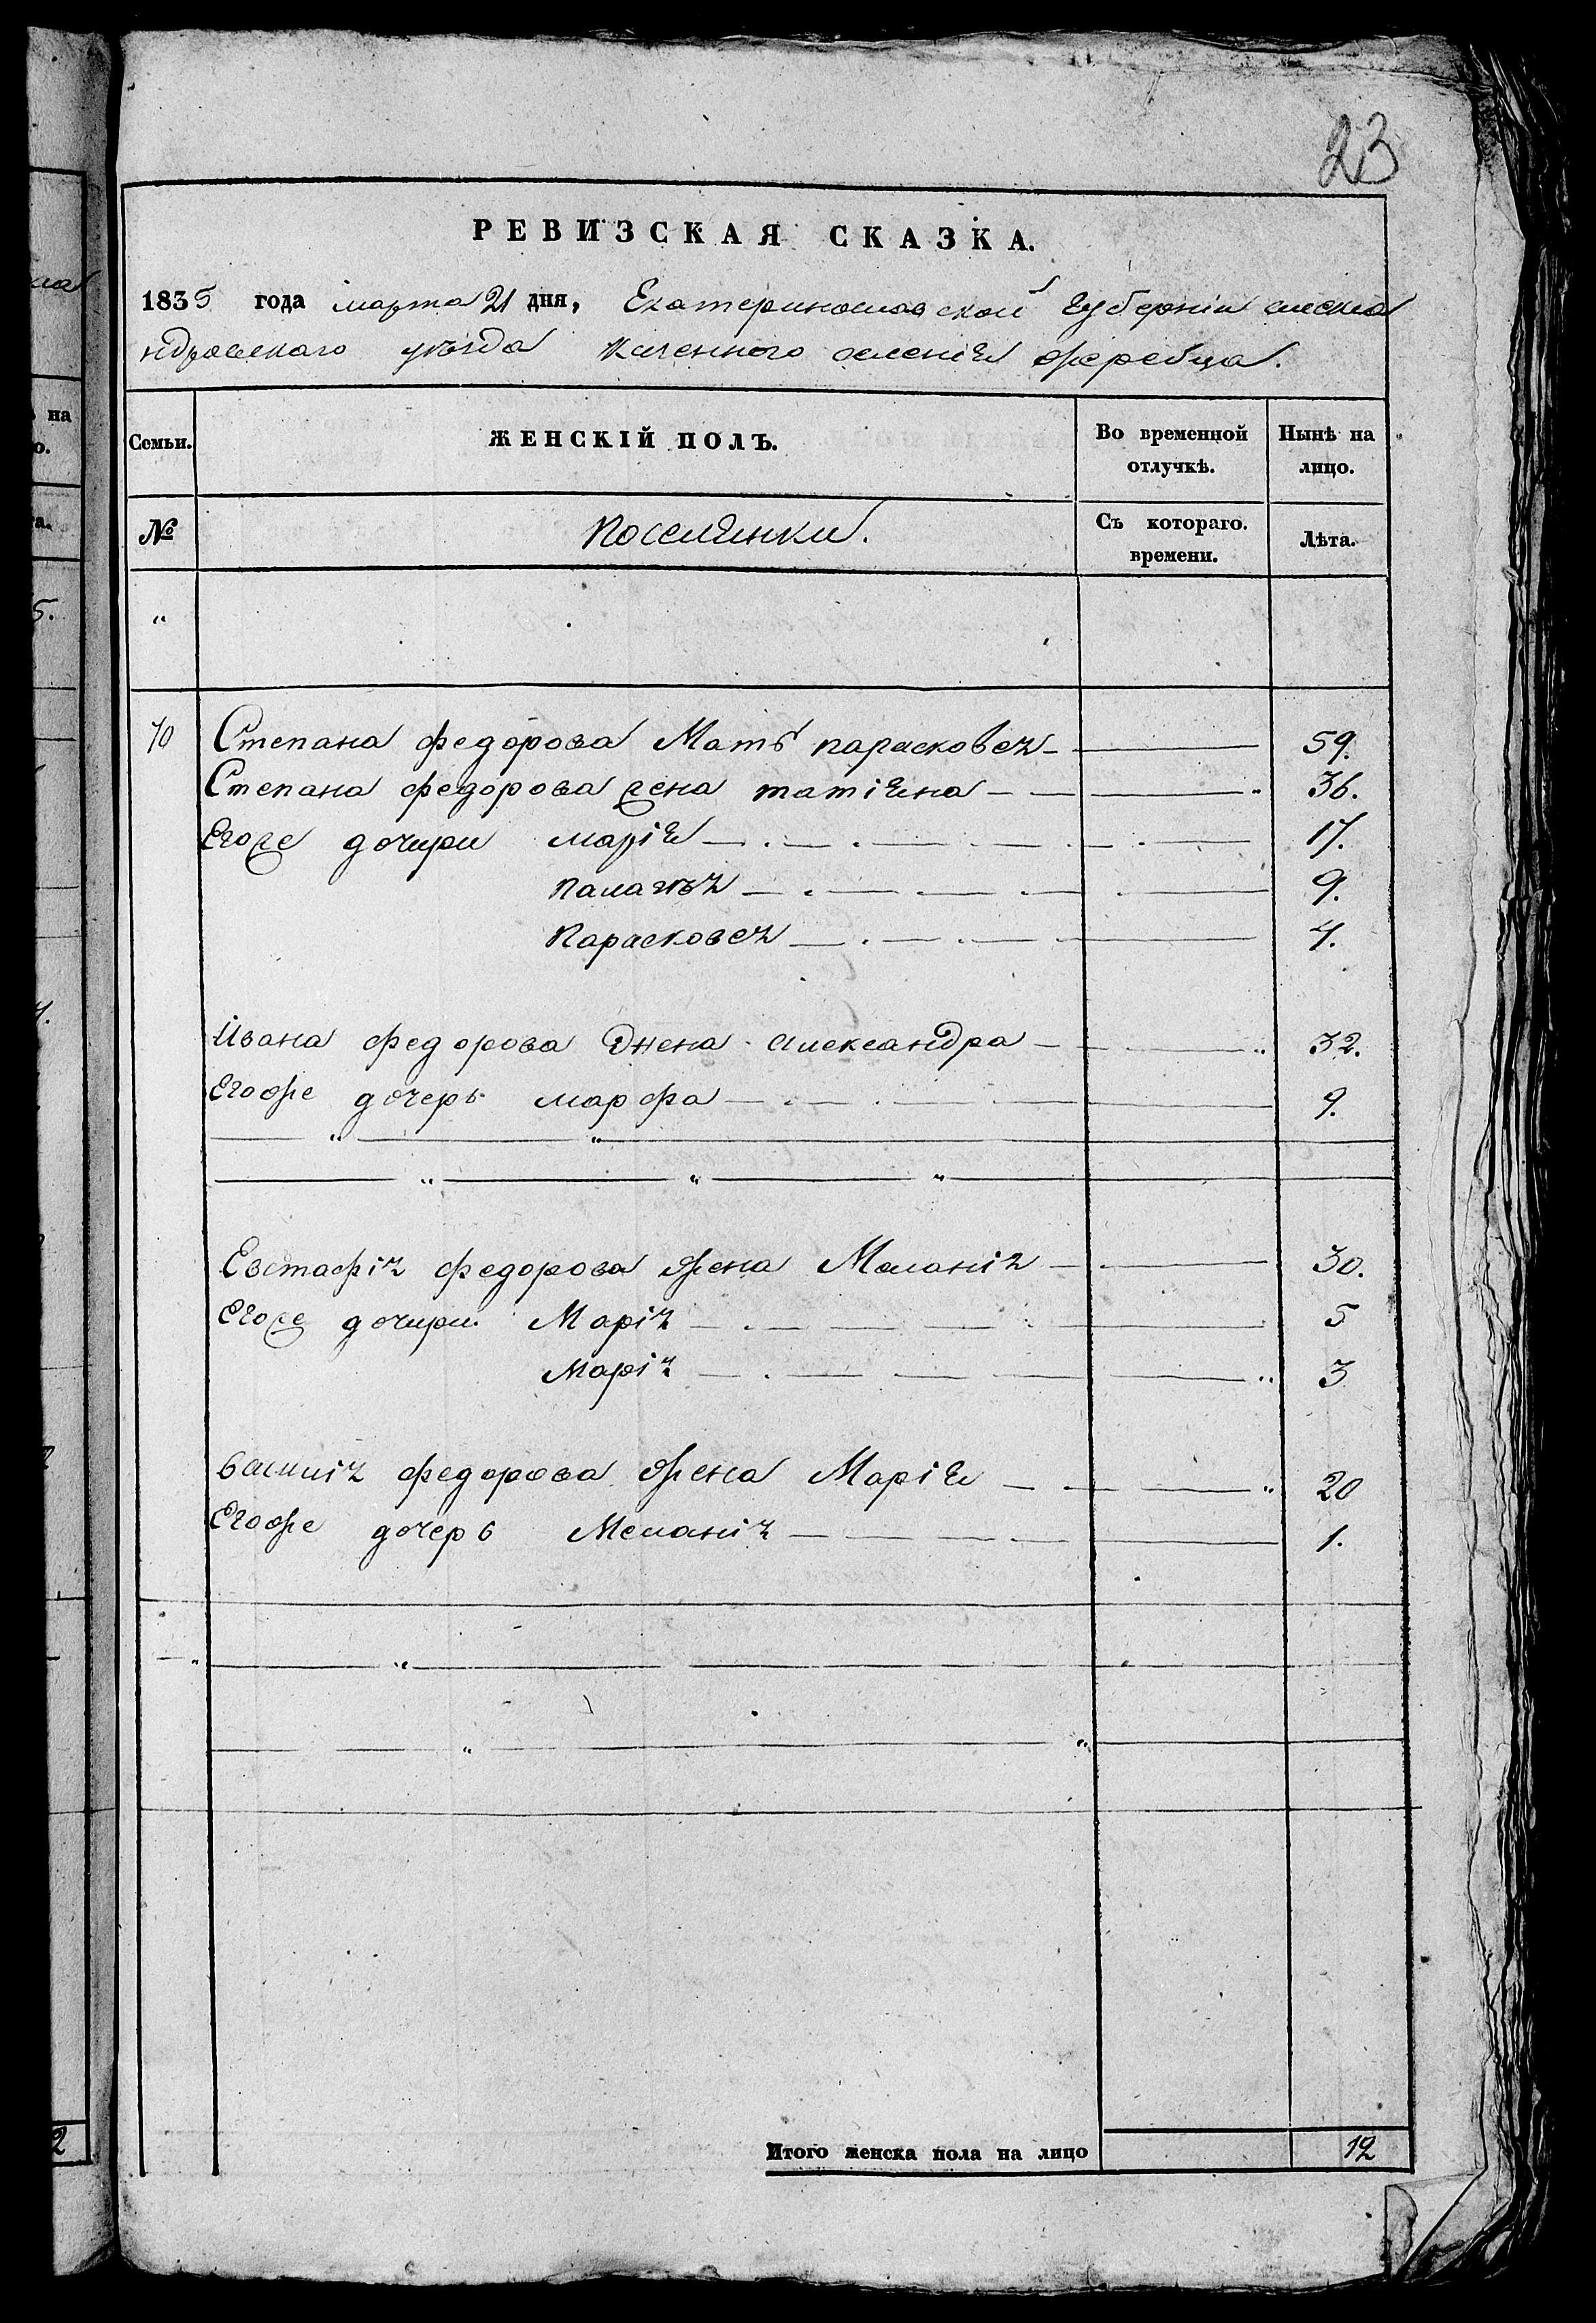 23
РЕВИЗСКАЯ СКАЗКА.
1835 года марта 21 дня, Екатеринославской губернии алекса
ндровскаго уезда казенного селения жеребца.
Семьи. ЖЕНСКІЙ ПОЛЪ. Во временной отлучкѣ. Нынѣ на лицо.
№ Поселянки. Съ котораго. времени. Лѣта.
"
10 Степана федорова Мать парасковея 59.
Степана федорова жена татіяна 36.
Егоже дочири марія 17.
палагѣя 9.
Парасковея 7.
Ивана федорова жена александра 32.
Егоже дочерь марфа 9.
Евстафія федорова жена Маланія 30.
Егоже дочири Марія 5
Марія 3
василія федорова жена Марія 20
Егоже дочерь Меланія 1.
Итого женска пола на лицо 12